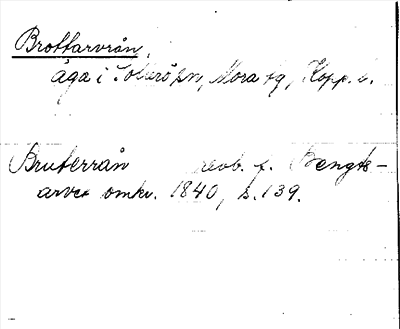 Brottarvrån,
äga i Sollerö sn, Mora tg, Kopp. l.
Bruterrån reob. f. Bengts-
arvet omkr. 1840, s. 139.